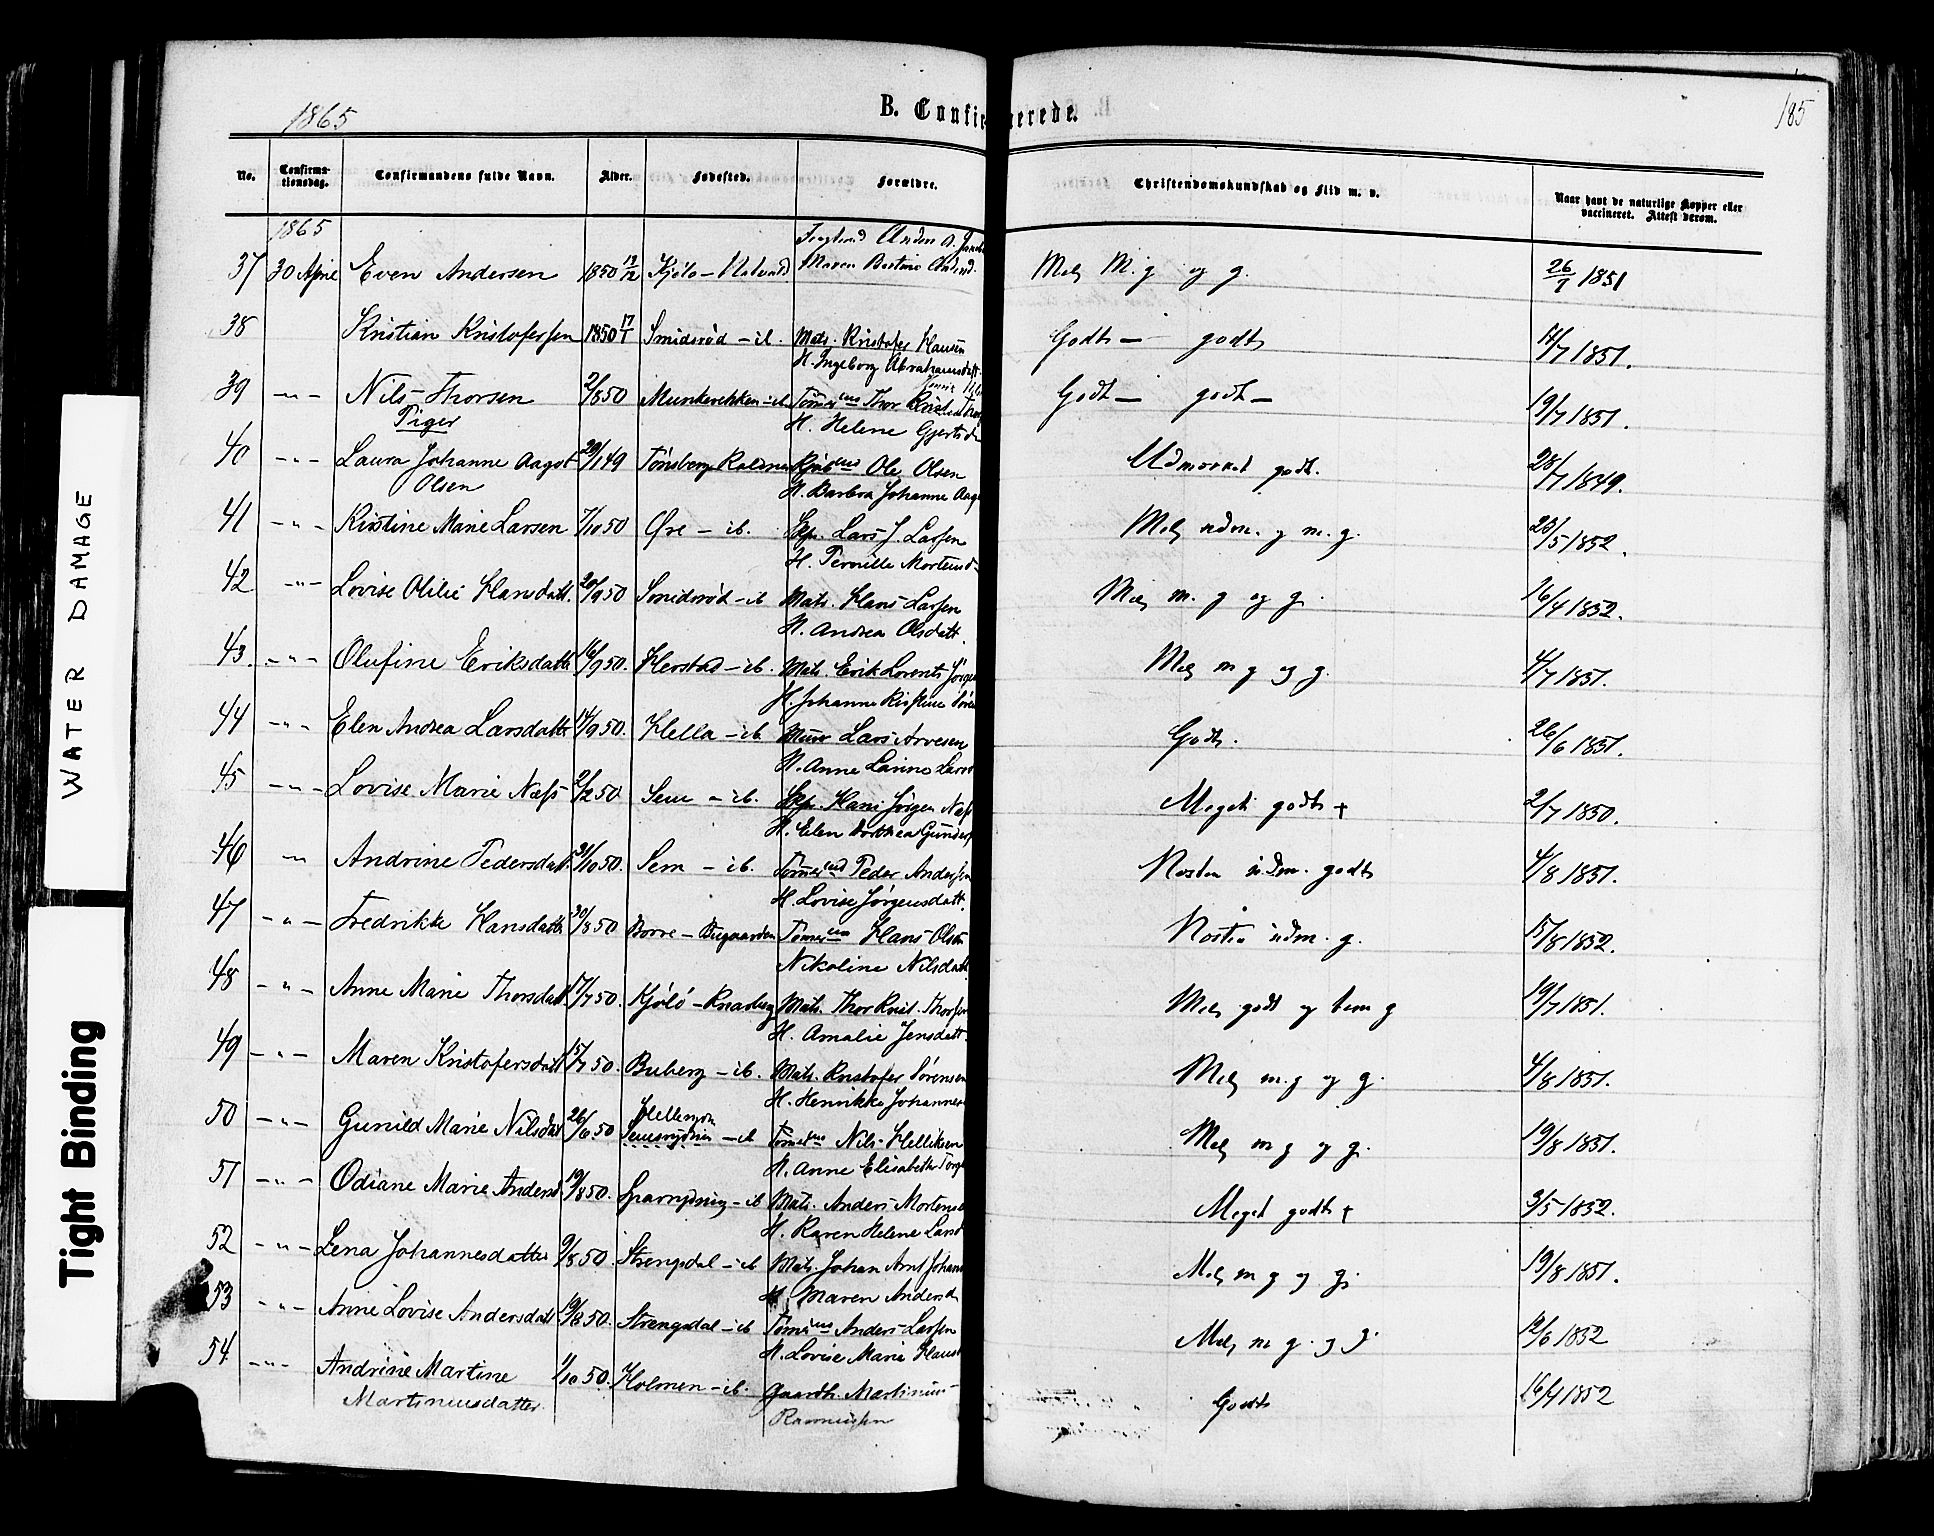 WATER DAMAGE
Tight Binding
1865
B. Confir merede.
185
No.
Confirma-
tionsdag.
Confirmandens fulde Navn.
Alder.
Fødested.
Forældre.
Christendomskundskab og Flid m. v.
Naar havt de naturlige Kopper eller
vaccineret. Attest derom.
1865
37 30 April Even Andersen 1850 Kjölö Maren Bertine M. g. og g. 26/7 1851
38 Kristian Kristofersen 1850 Smidsrød - ib. Mats. Kristofer Hansen Godt - godt 1851.
H. Ingeborg Abrahamsdatt.
39 -"- Nils Thorsen 2/8 50 Munkerekken - ib Tömmermd Thor Godt - godt - 19/7 1851.
Tiger H. Helene Gjertsd
40 -"- Laura Johanne Aagot 29/1 49 Tönsberg Ole Olsen Udmærket godt. 28/7 1849.
Olsen H. Barbra Johanne Aag
41 -"- Kirstine Marie Larsen 7/10 50 Øre - ib. Skp. Lars J. Larsen udm. g m. g. 28/5 1852.
H. Pernille Mortensd
42 -"- Lovise Olilie Hansdatt. 20/9 50 Smidsrød - ib Mats. Hans Larsen m. g og g. 16/4 1852.
H. Andrea Olsdatt.
43 -"- Olufine Eriksdatt 16/9 50. Herstad - ib. Mats. Erik Lorents Jörgen m g og g. 4/7 1851.
H. Johanne Kirstine Sören
44 -"- Elen Andrea Larsdatt 14/9 50. Hella - ib Lars Arvesen Godt. 26/6 1851.
H. Anne Larine Larsd
45 -"- Lovise Marie Næss 2/2 50 Sem - ib. Skp. Hans Jörgen Næss Meget godt + 2/7 1850.
H. Elen Dorthea Gunders
46 -"- Andrine Pedersdatt. 31/10 50. Sem - ib. Tömmermd Peder Andersen Næsten udm. godt 4/8 1851.
H. Lovise Jörgensdatt.
47 -"- Fredrikke Hansdatt 30/8 50 Borre - Hans Olsen Næsten udm. g. 17/8 1852.
Nikoline Nilsdatt
48 -"- Anne Marie Thorsdatt. 17/7 50. Kjölö - Knarberg Mats. Thor Krist. Thorsen godt og g 19/7 1851.
H. Amalie Jensdatt.
49 -"- Maren Kristofersdatt 15/7 50. Buberg - ib. Mats. Kristofer Sörensen m. g og g. 4/8 1851.
H. Henrikke Johannes
50 -"- Gunild Marie Nilsdat 26/6 50 - ib Tömmermd Nils Helliksen m g og g. 19/8 1851.
H. Anne Elisabeth Torge
51 -"- Odiane Marie Andersd 19/8 50. - ib Mats. Anders Mortensen Meget godt + 3/5 1852.
H. Karen Helene Larsd
52 -"- Lena Johannesdatter 9/8 50. Strengsdal - ib Mats. Johan Arnt Johann m g og g. 19/8 1851.
H. Maren Andersd
53 -"- Anne Lovise Andersdatt 19/8 50. Strengsdal - ib Tömmermd Anders Larsen m g. og g. 12/6 1852
H. Lovise Marie Hansd
54 -"- Andrine Martine 1/10 50. Holmen - ib. Gaardb. Martinius Godt 16/4 1852
Martiniusdatter. Rasmussen